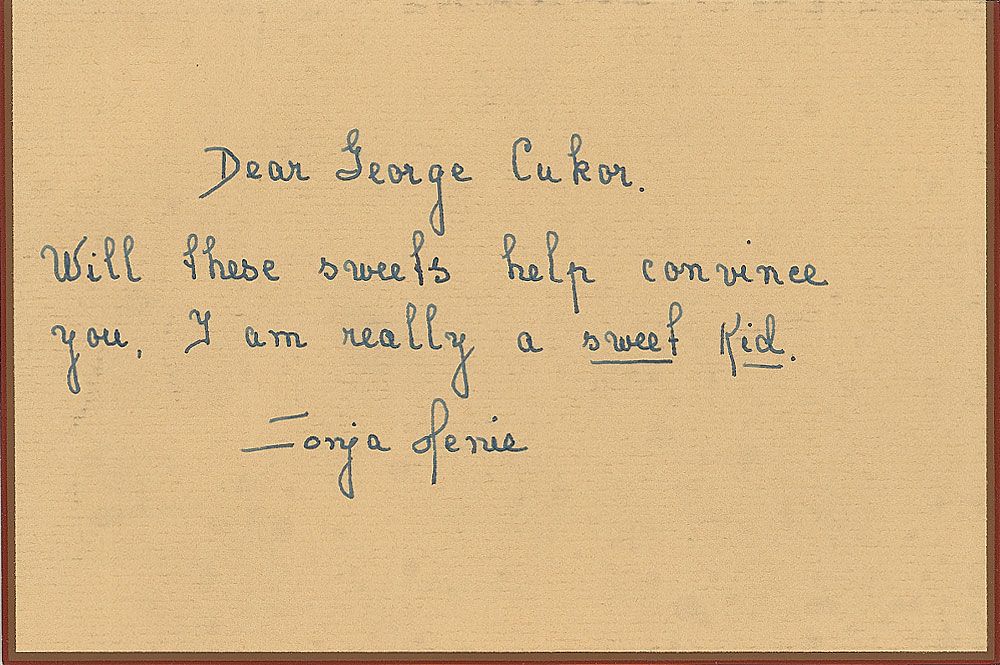 Dear George Cukor.
Will these sweets help convince
you, I am really a sweet Kid.
Sonja Henie